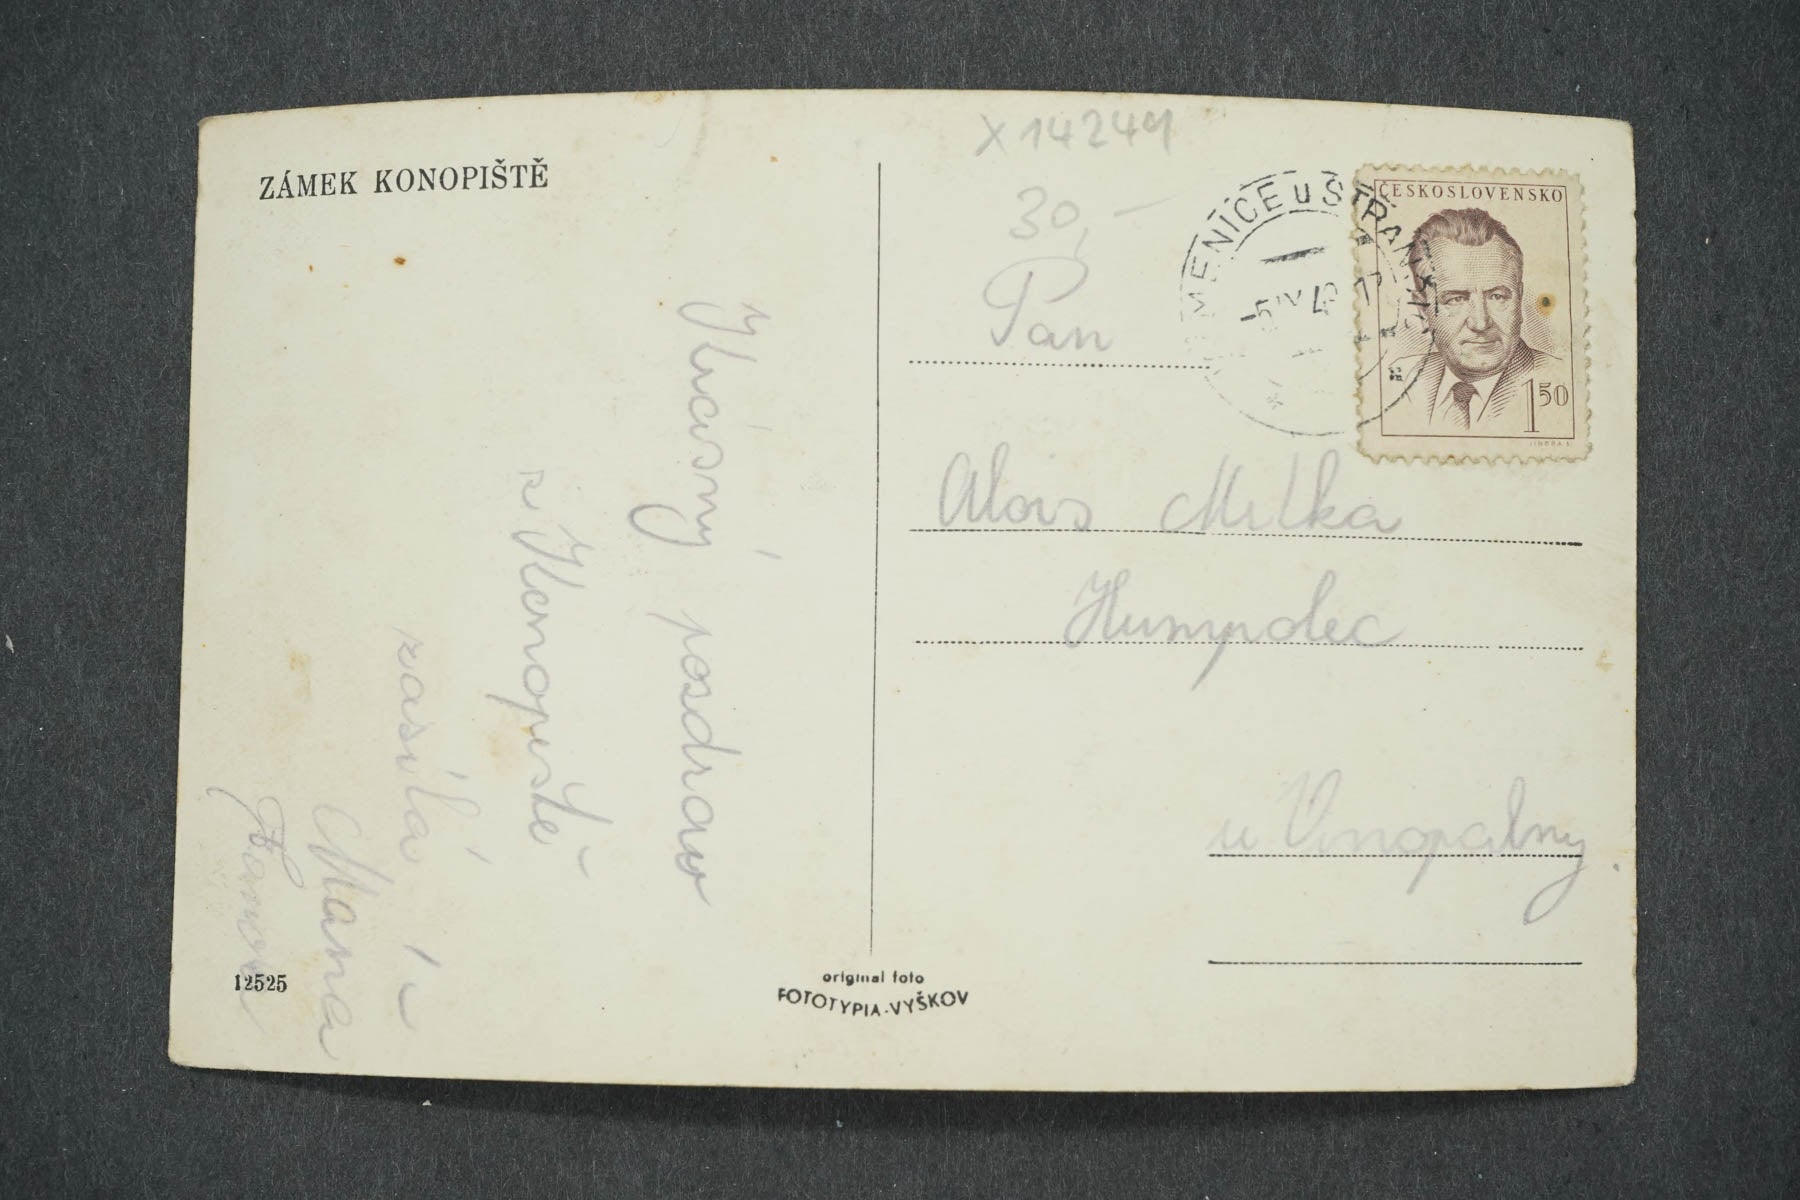 ZÁMEK KONOPIŠTĚ
Krásný pozdrav
z Konopiště
zasílá
Mana
12525
original foto
FOTOTYPIA-VYŠKOV
X 14249
30,-
MENICE u STRAN
ČESKOSLOVENSKO
1 50
JINDRA S.
Pan
Alois Milka
Humpolec
u Vinopalny.